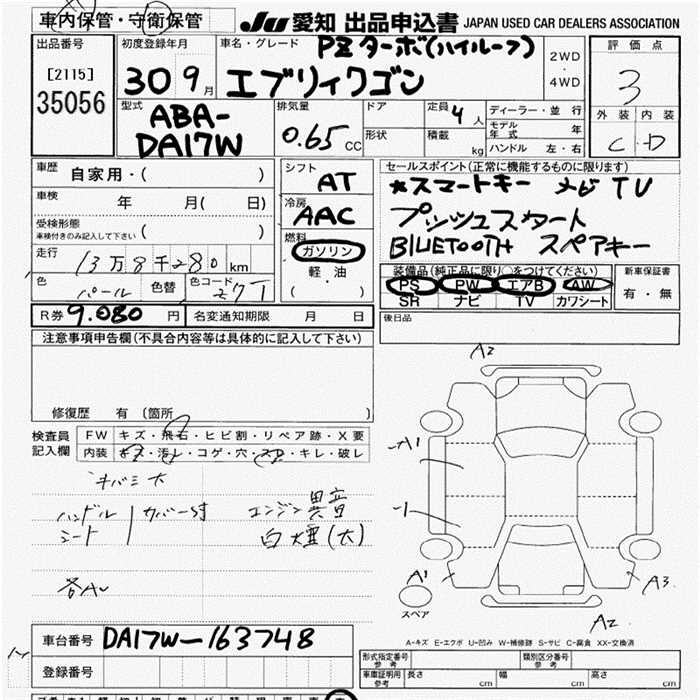 車内保管・守衛保管
JU 愛知 出品申込書 JAPAN USED CAR DEALERS ASSOCIATION
出品番号
[2115]
35056
初度登録年月
30 9月
車名・グレード PZターボ(ハイルーフ)
エブリイワゴン
2WD
・
4WD
評価点
3
外装 内装
C D
型式
ABA-
DA17W
排気量
0.65 CC
ドア
形状
定員 4人
積載 kg
ディーラー・並行
モデル年式 年
ハンドル 左・右
車歴 自家用・( )
車検 年 月( 日)
受検形態
車検付きのみ記入して下さい ( )
走行 13万8千280 km
色 パール 色替 色コード Z7T
シフト AT
冷房 AAC
燃料
ガソリン
軽・油
( )
セールスポイント(正常に機能するものに限ります)
*スマートキー ナビ TV
プッシュスタート
BlUETOOTH スペアキー
装備品(純正品に限り○をつけてください)
PS PW エアB AW
SR ナビ TV カワシート
新車保証書
有・無
R券 9.080 円 名変通知期限 月 日
後日品
注意事項申告欄(不具合内容等は具体的に記入して下さい)
修復歴 有 (箇所 )
検査員
記入欄
FW キズ・飛石・ヒビ割・リペア跡・X要
内装 キズ・汚レ・コゲ・穴・スレ・キレ・破レ
キバミ大
ハンドル
シート
カバー付
エンジン異音
白煙(大)
各AU
A2
A1
A1
A3
A2
スペア
A-キズ E-エクボ U-凹み W-補修跡 S-サビ C-腐食 XX-交換済
車台番号 DA17W-163748
登録番号
形式指定番号
参考
類別区分番号
参考
車庫証明用
参考
長さ cm 幅 cm 高さ cm